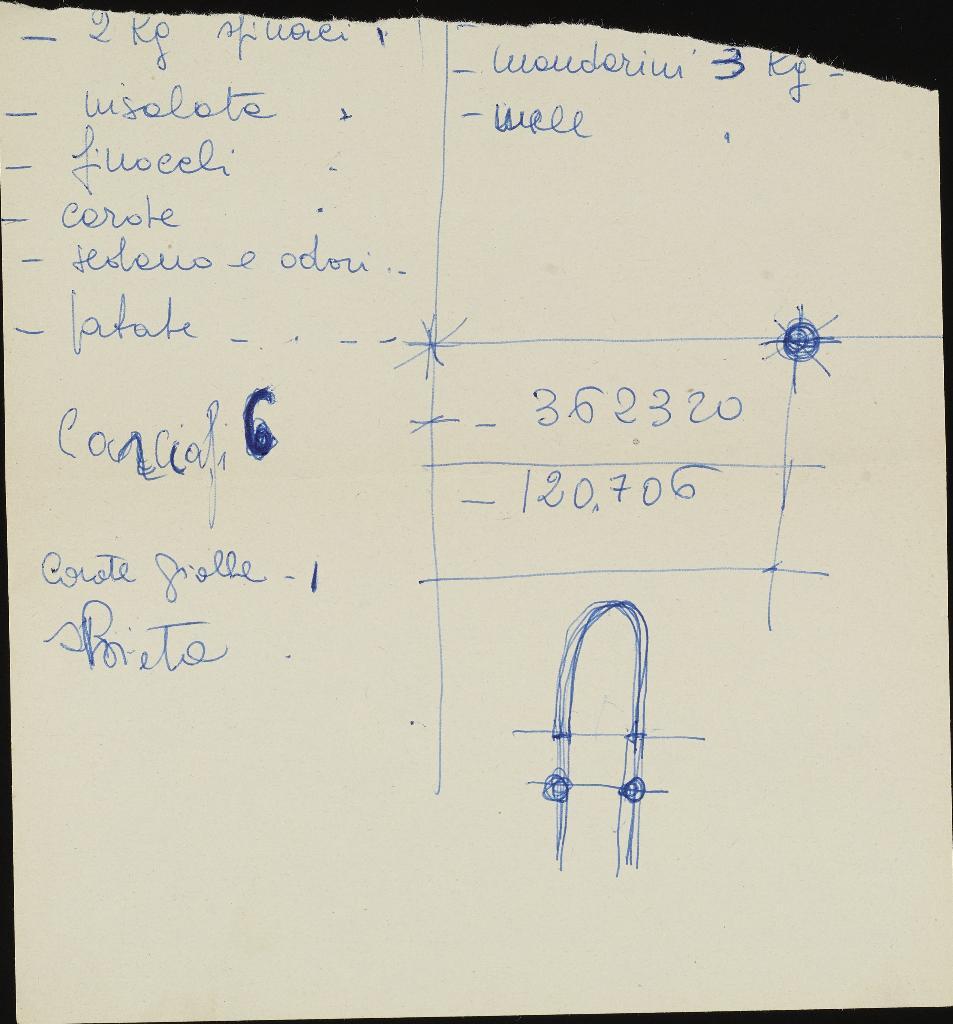 — 2 Kg spinaci
— insalata
— finocchi
— carote
— sedano e odori ..
— patate — . — —
Carciofi 6
Carote gialle - 1
Bieta
— mandarini 3 Kg —
— mele
— 362320
— 120.706